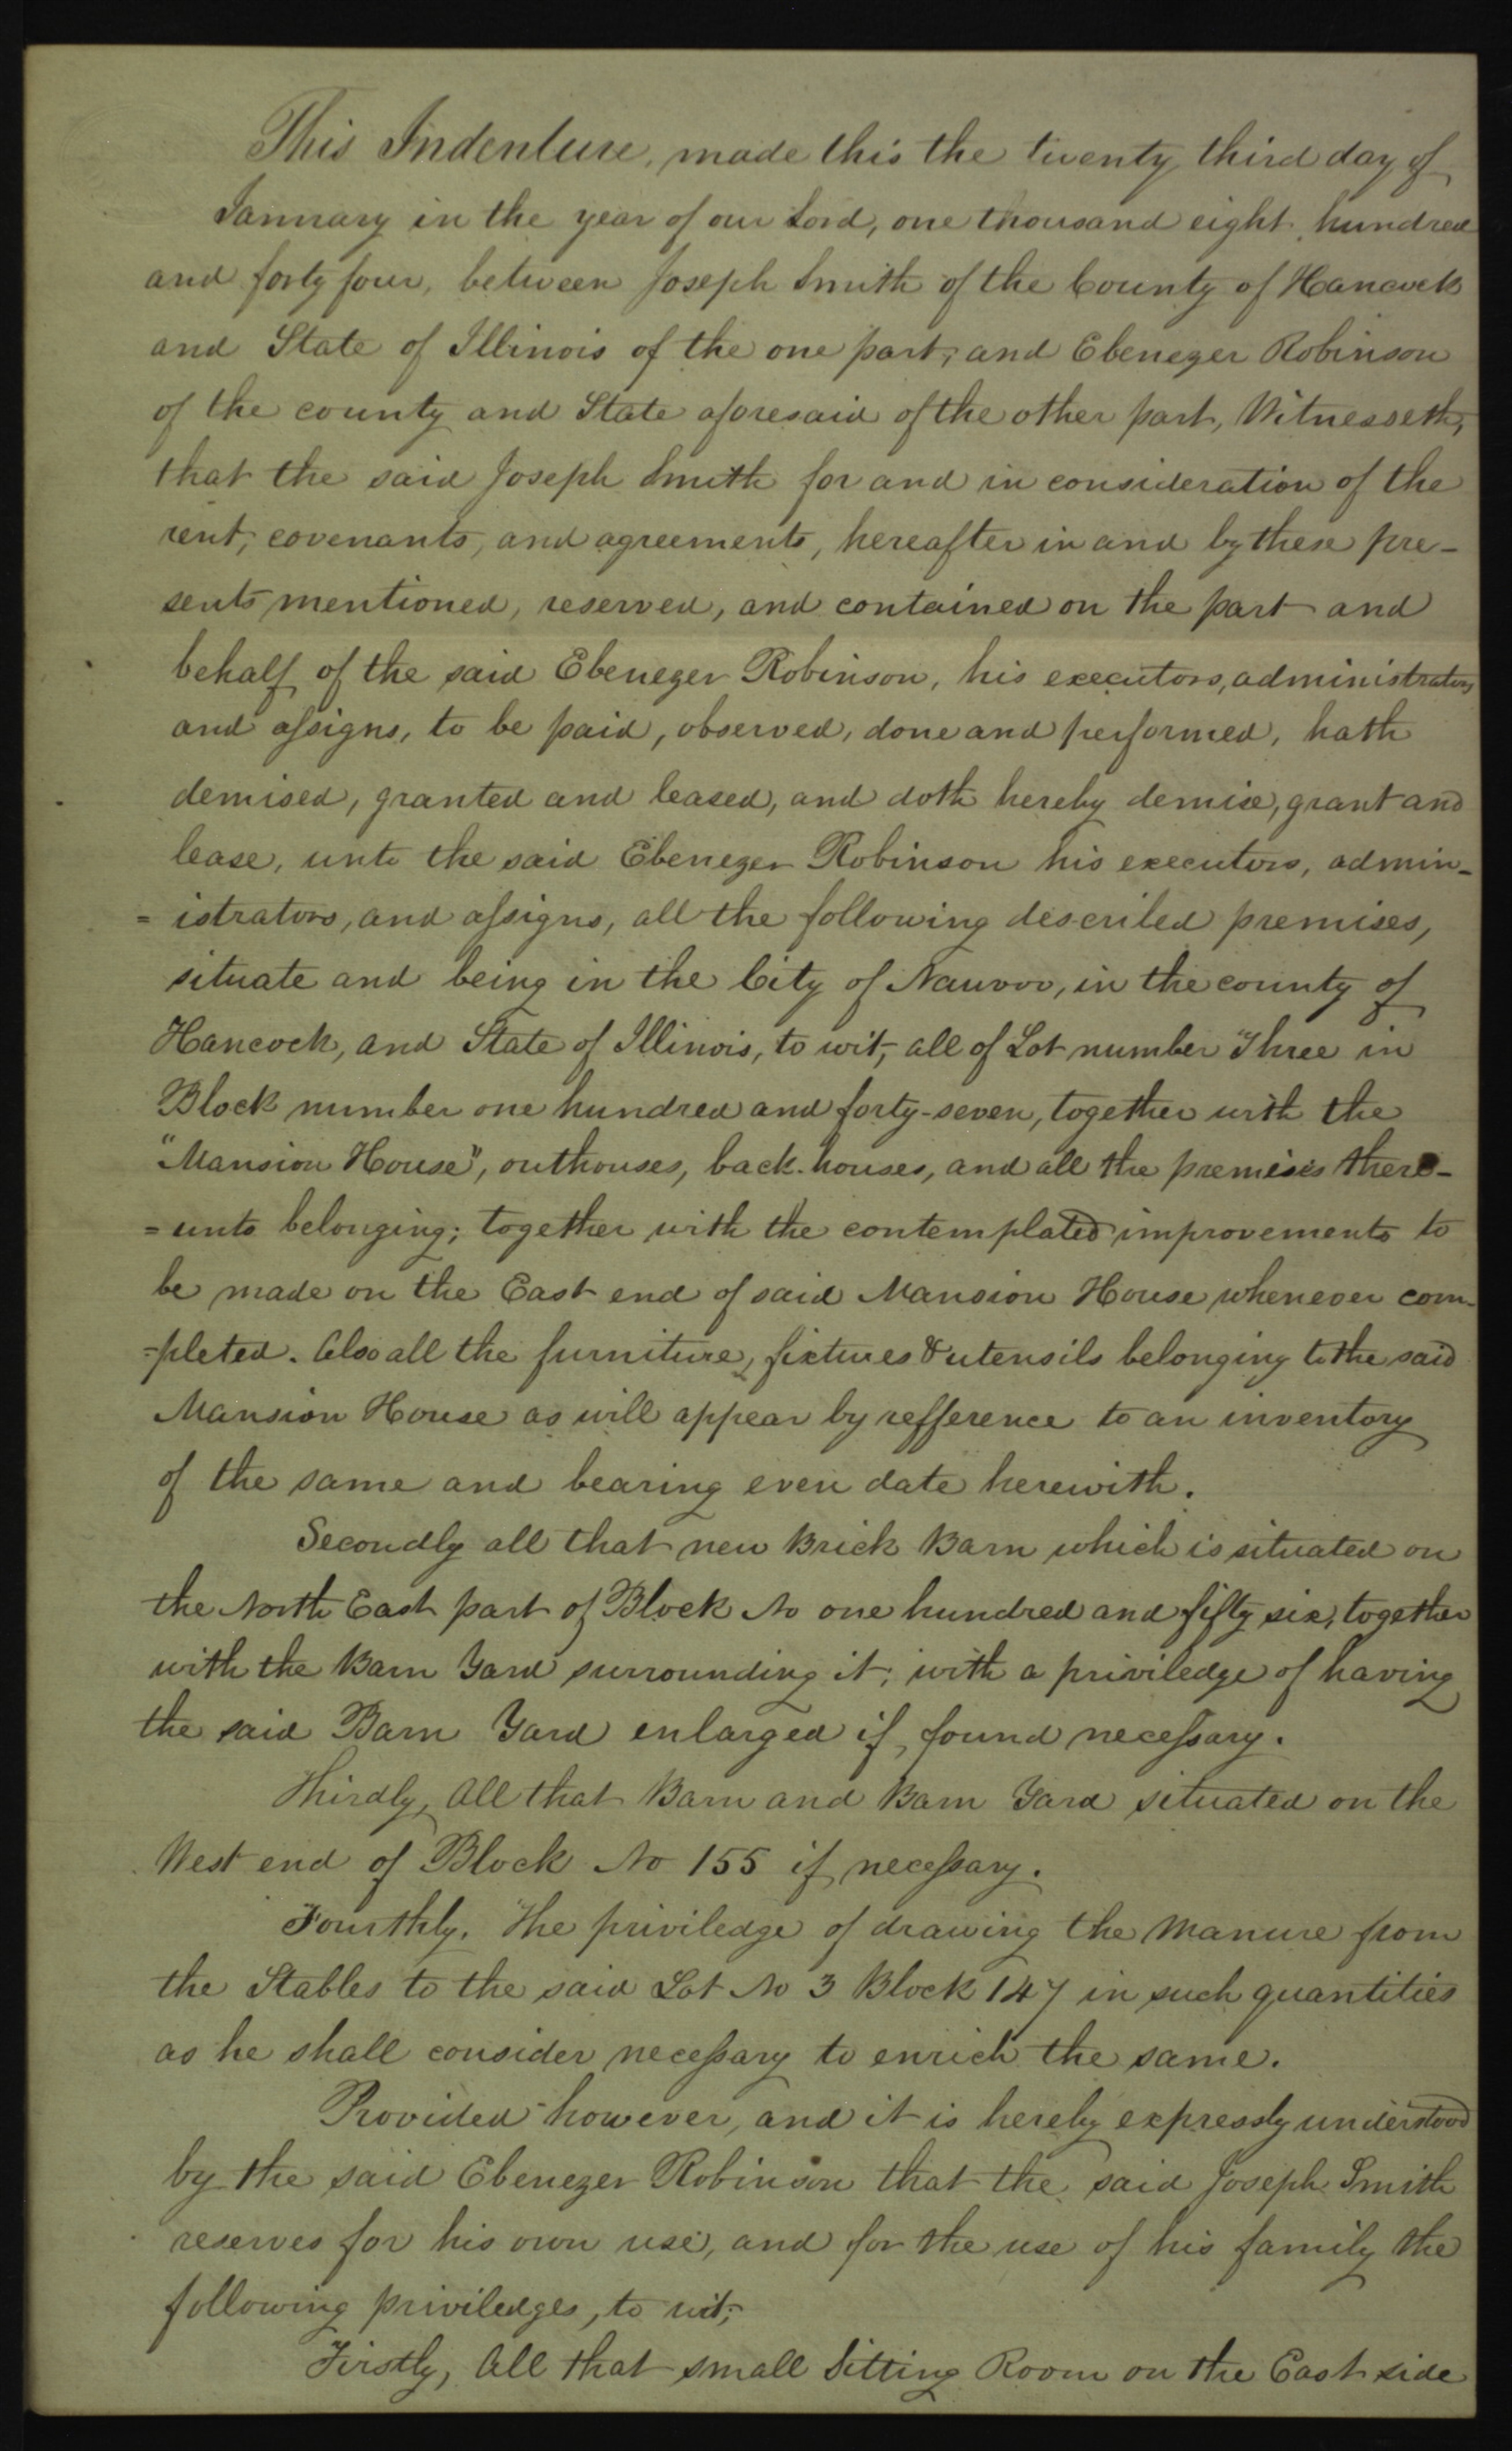 This Indenture, made this the twenty third day of
January in the year of our Lord, one thousand eight hundred
and forty four, between Joseph Smith of the County of Hancock
and State of Illinois of the one part, and Ebenezer Robinson
of the county and State aforesaid of the other part, Witnesseth,
that the said Joseph Smith for and in consideration of the
rent, covenants, and agreements, hereafter in and by these pre-
sents mentioned, reserved, and contained on the part and
behalf of the said Ebenezer Robinson, his executors, administrators
and assigns, to be paid, observed, done and performed, hath
demised, granted and leased, and doth hereby demise, grant and
lease, unto the said Ebenezer Robinson his executors, admin-
=istrators, and assigns, all the following described premises,
situate and being in the City of Nauvoo, in the county of
Hancock, and State of Illinois, to wit, all of Lot number Three in
Block number one hundred and forty-seven, together with the
"Mansion House", outhouses, back-houses, and all the premises there-
=unto belonging; together with the contemplated improvements to
be made on the East end of said Mansion House whenever com-
=pleted. Also all the furniture, fixtures & utensils belonging to the said
Mansion House as will appear by refference to an inventory
of the same and bearing even date herewith.
Secondly all that new Brick Barn which is situated on
the North East part of Block No one hundred and fifty six, together
with the Barn Yard surrounding it; with a priviledge of having
the said Barn Yard enlarged if found necessary.
Thirdly, All that Barn and Barn Yard situated on the
West end of Block No 155 if necessary.
Fourthly. The priviledge of drawing the Manure from
the Stables to the said Lot No 3 Block 147 in such quantities
as he shall consider necessary to enrich the same.
Provided however, and it is hereby expressly understood
by the said Ebenezer Robinson that the said Joseph Smith
reserves for his own use, and for the use of his family the
following priviledges, to wit;
Firstly, All that small Sitting Room on the East side